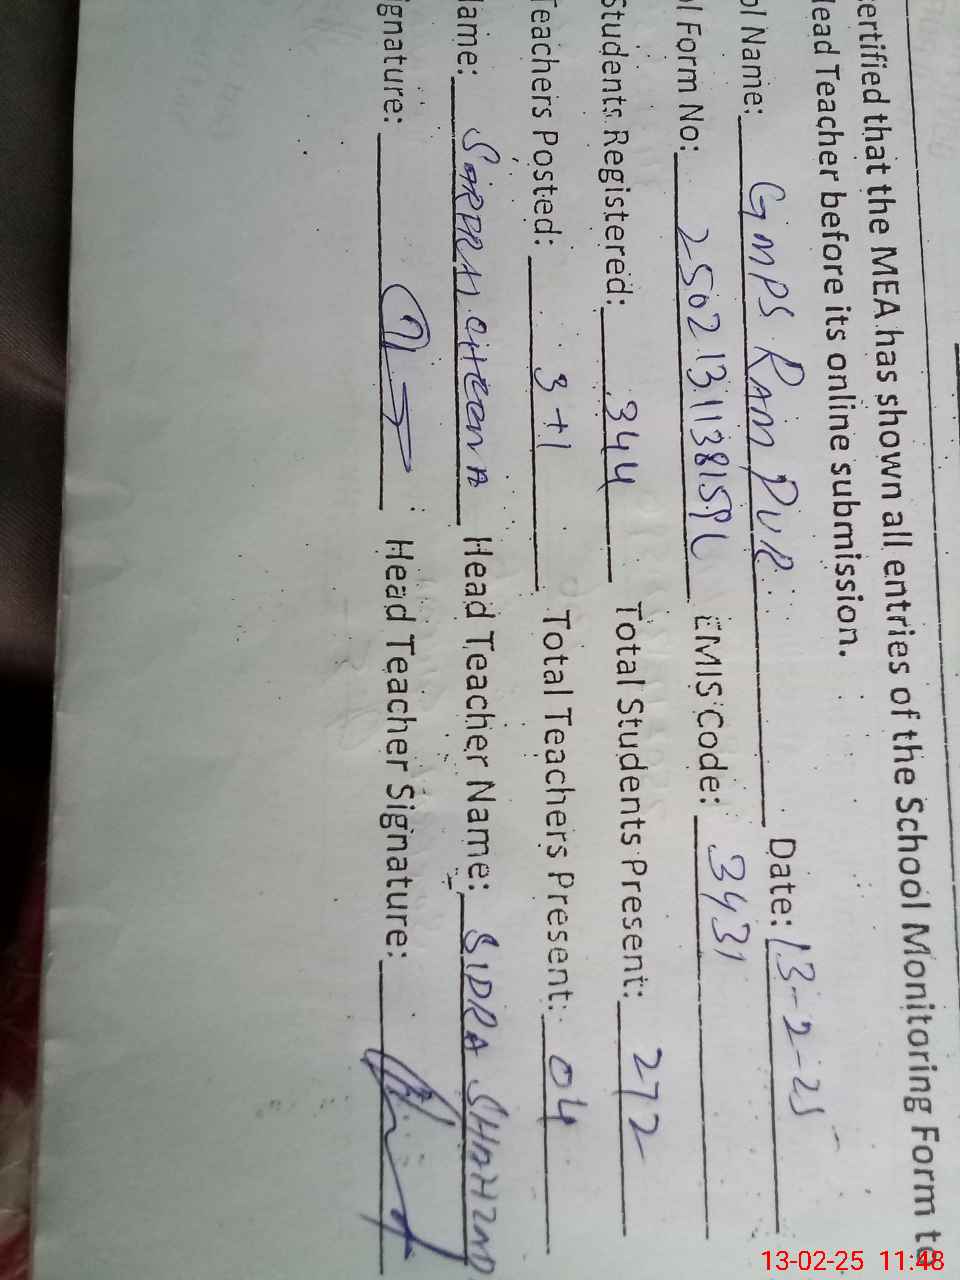 ertified that the MEA has shown all entries of the School Monitoring Form to
Head Teacher before its online submission.
ol Name: GMPS RAMPUR Date: 13-2-25
ol Form No: EMIS Code: 3431
Students Registered: 344 Total Students Present: 272
Teachers Posted: 3+1 Total Teachers Present: 04
Name: CHEEMA Head Teacher Name: SIDRA
ignature: Head Teacher Signature:
13-02-25 11:48